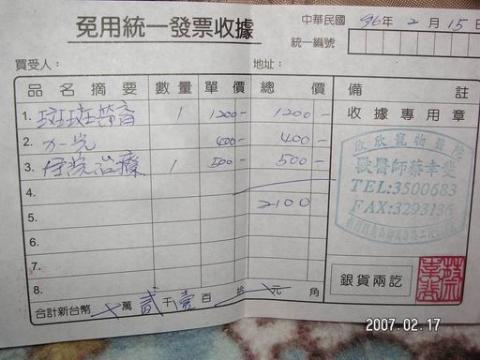 免用統一發票收據
中華民國 96年 2月 15日
統一編號
買受人： 地址：
品名摘要 數量 單價 總價 備註
1. 斑斑 1 1200- 1200-
2. 400- 400-
3. 住院治療 1 500- 500-
4.
5. 2100
6.
7.
8.
收據專用章
欣欣寵物醫院
獸醫師蔡孝
TEL:3500683
FAX:3293136
銀貨兩訖
合計新台幣 萬 貳 千 壹 百 拾 元 角
2007.02.17